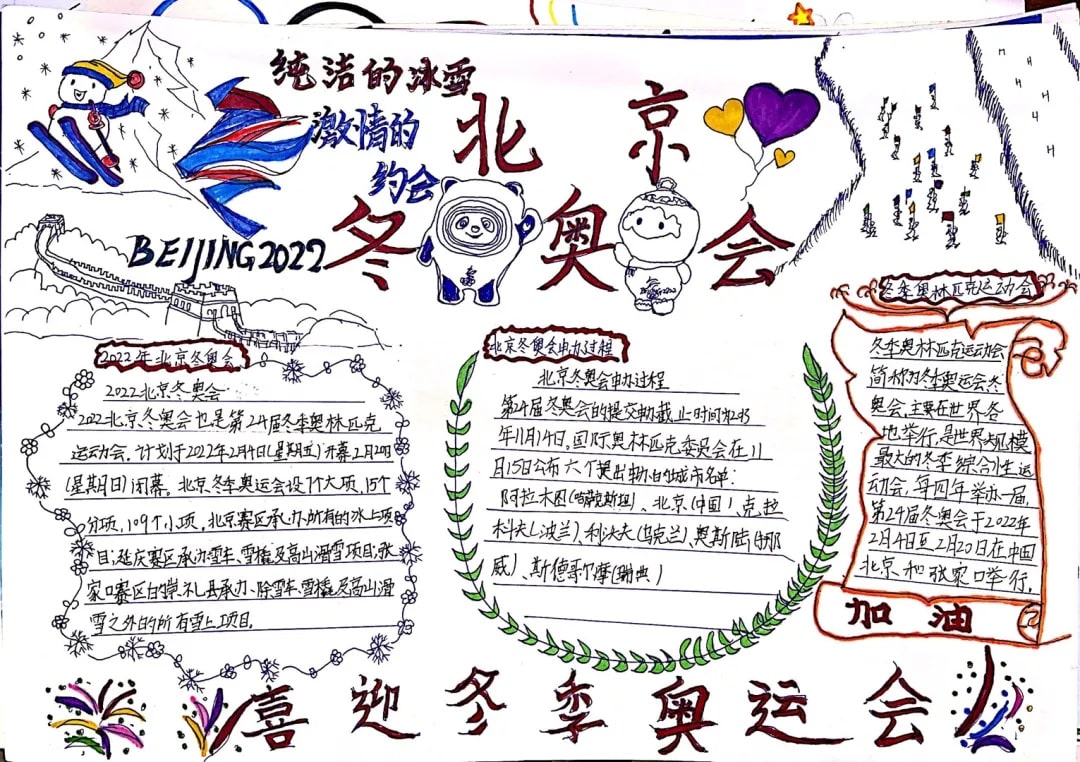 纯洁的冰雪
激情的
约会
北京
冬奥会
BEIJING2022
2022年北京冬奥会
2022北京冬奥会
2022北京冬奥会也是第24届冬季奥林匹克
运动会，计划于2022年2月4日(星期五)开幕2月20日
(星期日)闭幕。北京冬季奥运会设7个大项，15个
分项，109个小项，北京赛区承办所有的冰上项
目；延庆赛区承办雪车、雪橇及高山滑雪项目；张
家口赛区的崇礼县承办、除雪车、雪橇及高山滑
雪之外的所有雪上项目。
北京冬奥会申办过程
北京冬奥会申办过程
第24届冬奥会的提交申办截止时间为2013
年11月14日，国际奥林匹克委员会在11
月15日公布六个提出申办的城市名单：
阿拉木图(哈萨克斯坦)、北京(中国)、克拉
科夫(波兰)、利沃夫(乌克兰)、奥斯陆(挪
威)、斯德哥尔摩(瑞典)
冬季奥林匹克运动会
冬季奥林匹克运动会
简称为冬季奥运会冬
奥会，主要在世界各
地举行，是世界规模
最大的冬季综合性运
动会，每四年举办一届，
第24届冬奥会于2022年
2月4日至2月20日在中国
北京和张家口举行。
加油
喜迎冬季奥运会